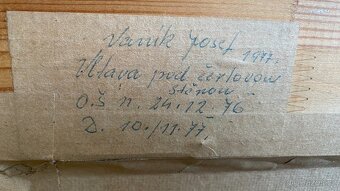 Vaník Josef
1977.
Vltava pod čertovou
stěnou
O.Š. n. 24.12.76
D. 10./11.77.